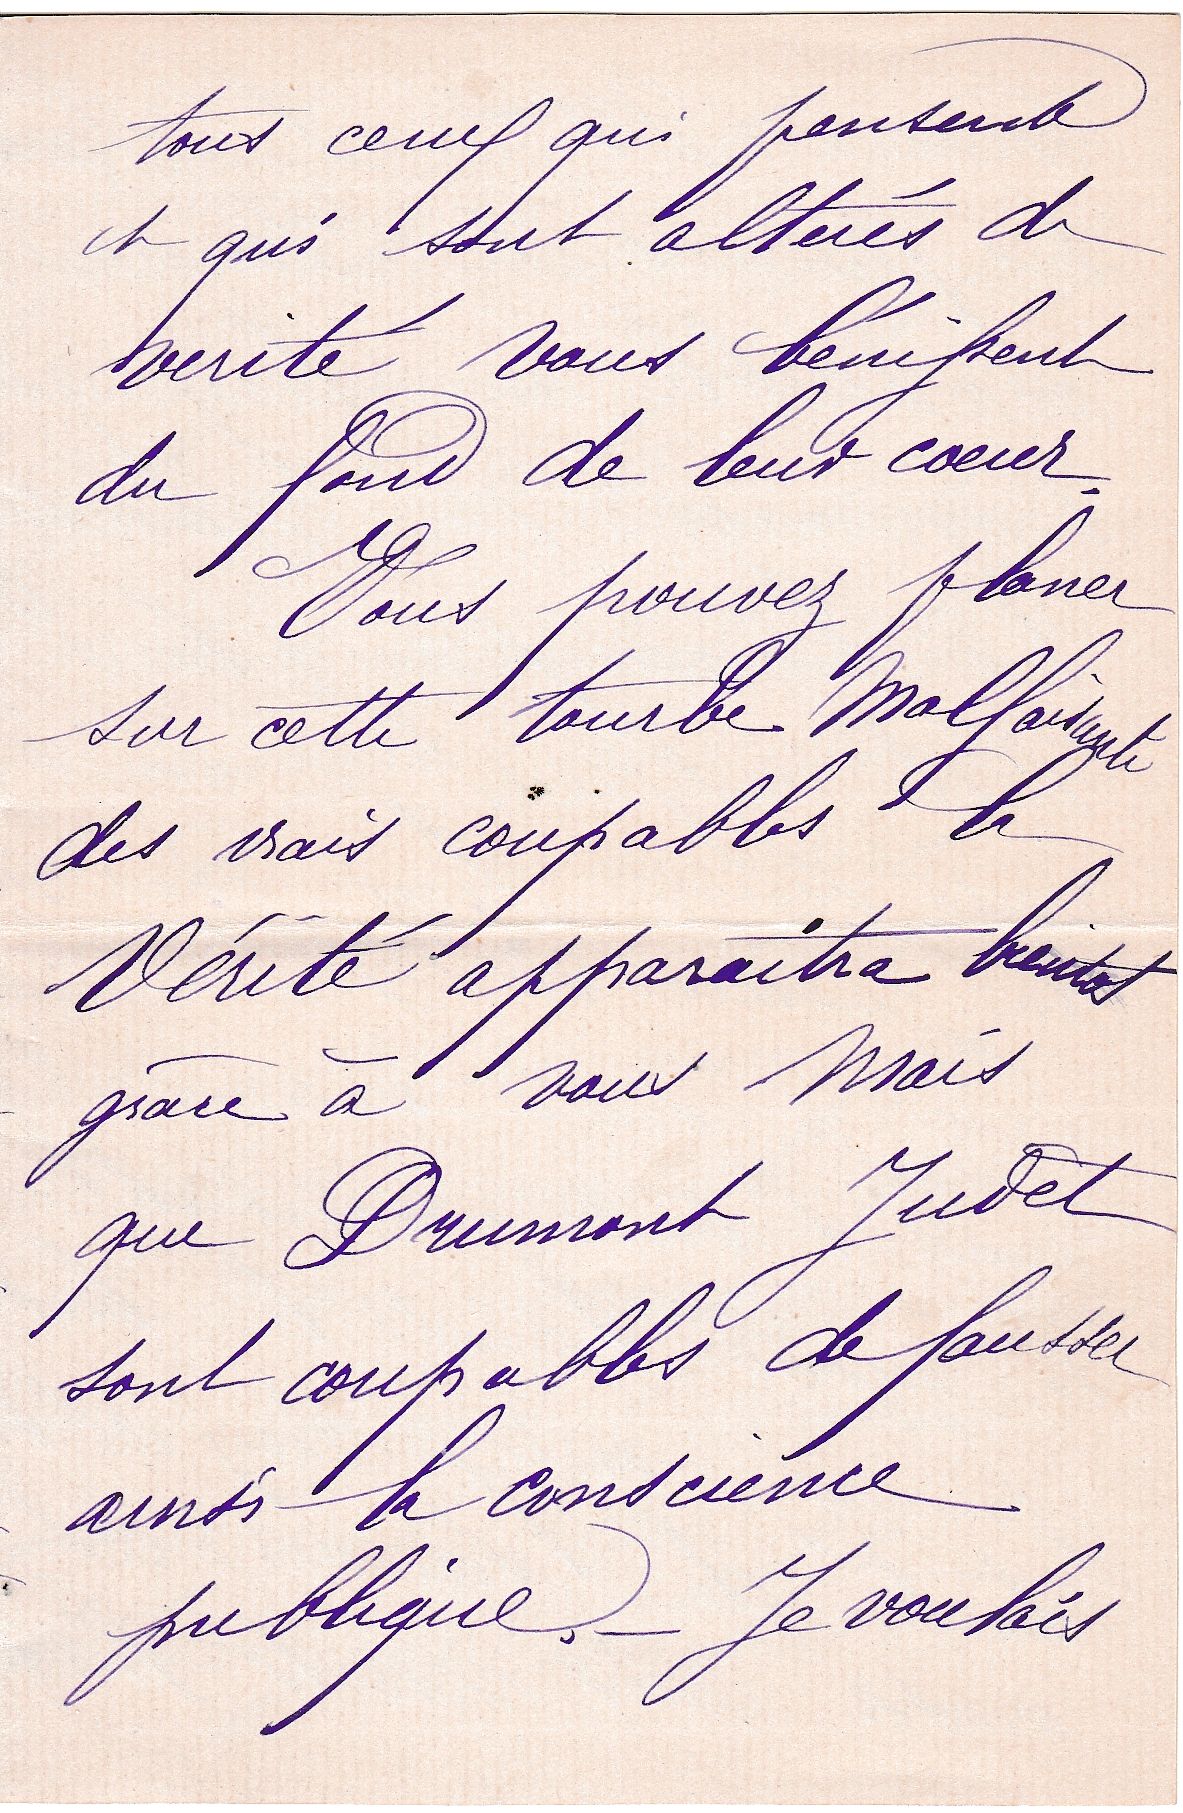 tous ceux qui pensent
et qui sont altérés de
verité vous bénissent
du fond de leur coeur.
Vous pouvez planer
sur cette tourbe malfaisante
des vrais coupables la
Vérité apparaitra bientot
grâce à vous mais
que Drumont Judet
sont coupables de fausser
ainsi la conscience
publique. – Je voulais